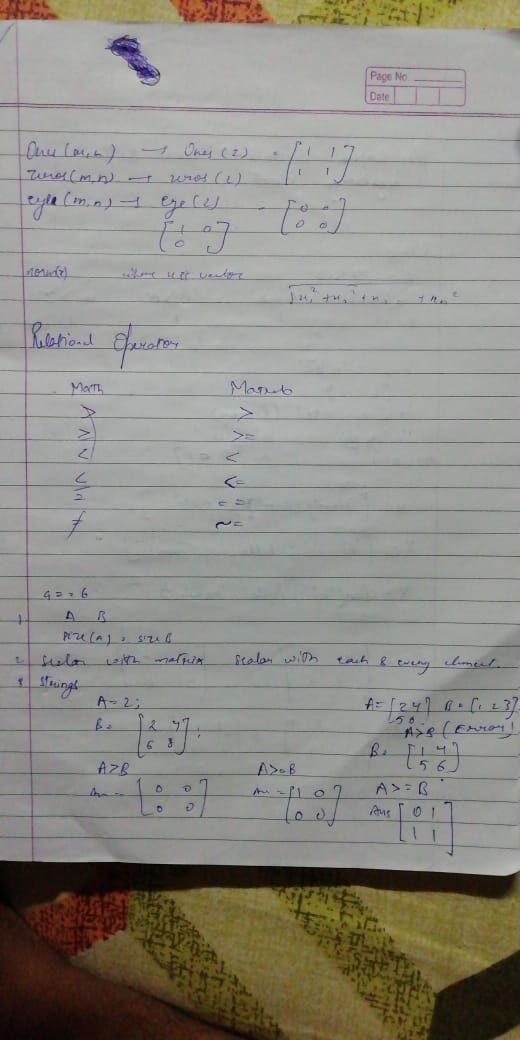 Page No.
Date
Ones (m,n) → Ones (2) = [1 1
1 1]
zeros (m,n) → zeros (2)
eye (m,n) → eye (2) = [0 0
0 0]
[1 0
0 1]
norm(x) where x is vector
Relational Operator
Math Matlab
> >
≥ >=
< <
≤ <=
= ==
≠ ~=
a == 6
1 A B
size(A) = size B
2 Scalar with matrix scalar with each & every element.
3 Strings
A = 2;
B = [2 4
6 8];
A>B A>=B
Ans = [0 0
0 0]
Ans = [1 0
0 0]
A = [2 4
5 0] B = [1 2 3]
A>B (Error)
B = [1 4
5 6]
A>=B
Ans [0 1
1 1]